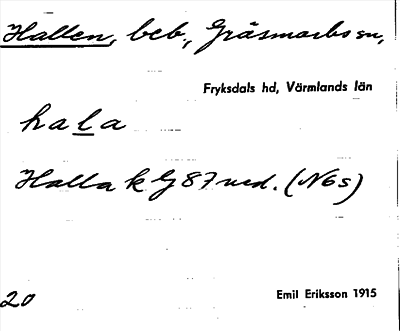 Hallen, beb., Gräsmarks sn,
Fryksdals hd, Värmlands län
hala
Halla k G 87 ned. (N6s)
20
Emil Eriksson 1915